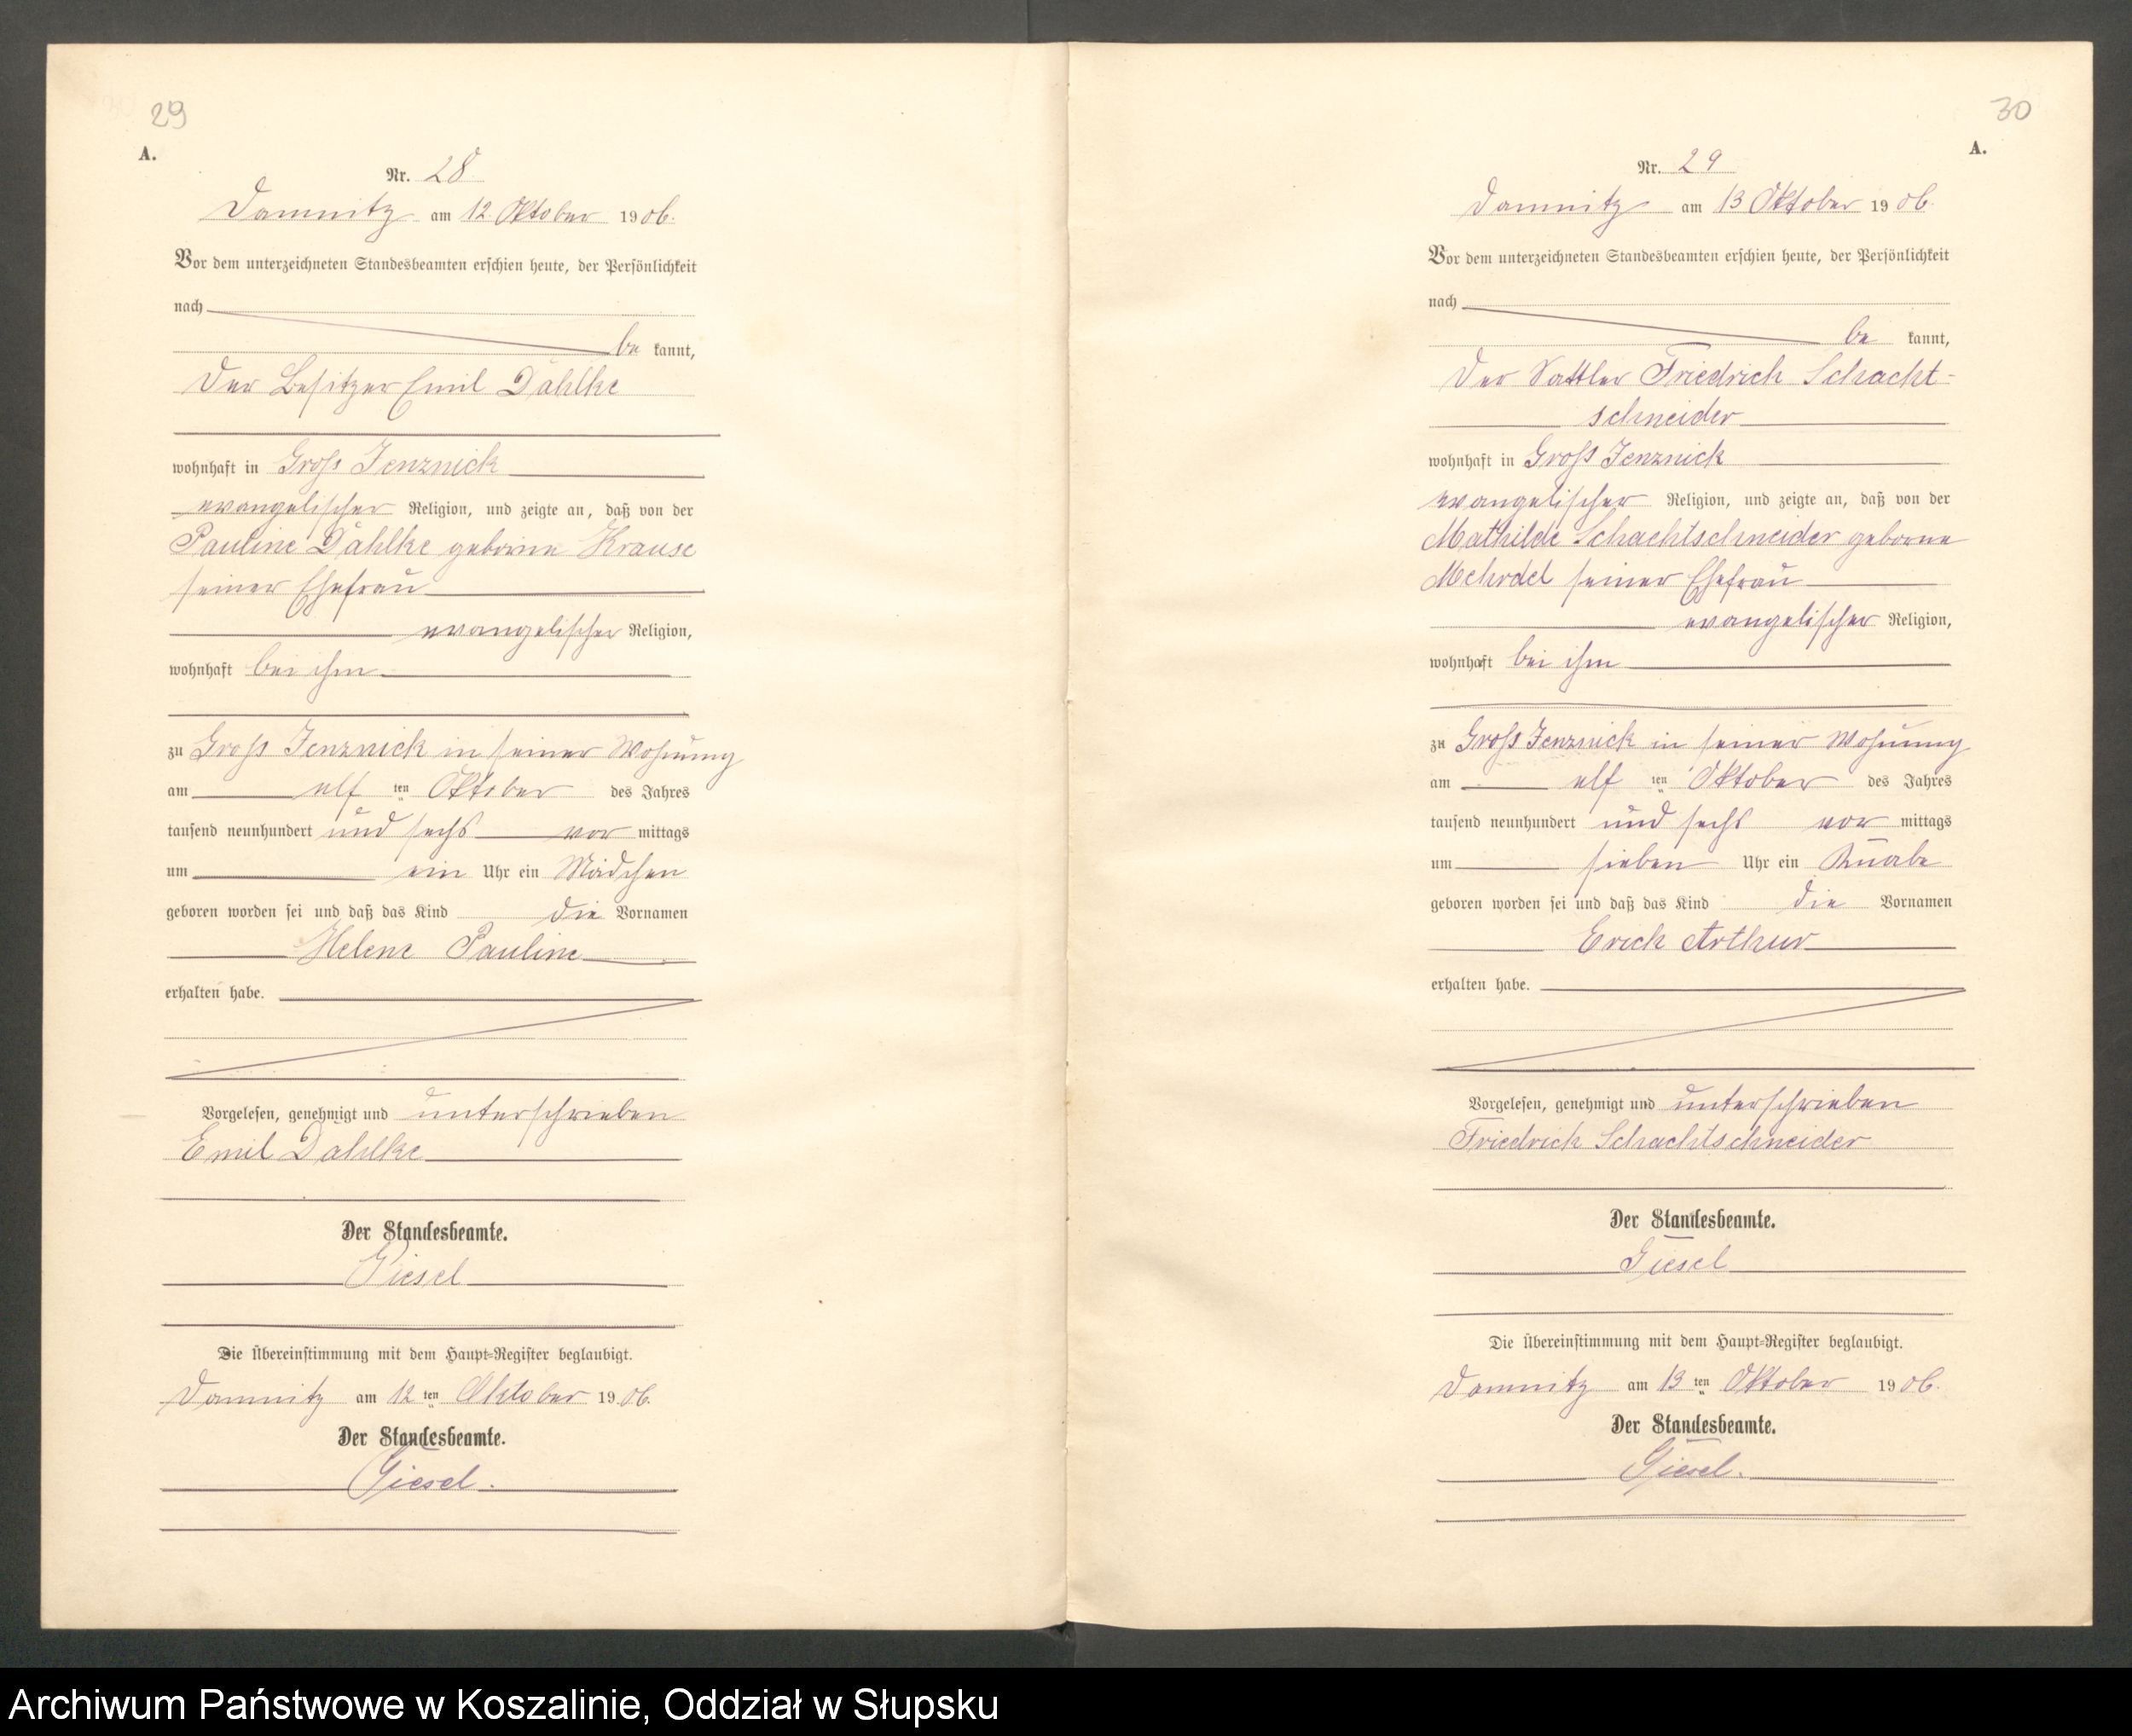 29
A.
Nr. 28
Damnitz am 12. Oktober 1906.
Vor dem unterzeichneten Standesbeamten erschien heute, der Persönlichkeit
nach
be kannt,
der Besitzer Emil Dahlke
wohnhaft in Groß Jenznick
evangelischer Religion, und zeigte an, daß von der
Pauline Dahlke geborne Krause
seiner Ehefrau
evangelischer Religion,
wohnhaft bei ihm
zu Groß Jenznick in seiner Wohnung
am elf ten Oktober des Jahres
tausend neunhundert und sechs vor mittags
um ein Uhr ein Mädchen
geboren worden sei und daß das Kind die Vornamen
Helene Pauline
erhalten habe.
Vorgelesen, genehmigt und unterschrieben
Emil Dahlke
Der Standesbeamte.
Giesel
Die Übereinstimmung mit dem Haupt-Register beglaubigt.
Damnitz am 12 ten Oktober 1906.
Der Standesbeamte.
Giesel.
30
A.
Nr. 29
Damnitz am 13 Oktober 1906.
Vor dem unterzeichneten Standesbeamten erschien heute, der Persönlichkeit
nach
be kannt,
der Sattler Friedrich Schacht-
schneider
wohnhaft in Groß Jenznick
evangelischer Religion, und zeigte an, daß von der
Mathilde Schachtschneider geborne
Mehrdel seiner Ehefrau
evangelischer Religion,
wohnhaft bei ihm
zu Groß Jenznick in seiner Wohnung
am elf ten Oktober des Jahres
tausend neunhundert und sechs vor mittags
um sieben Uhr ein Knabe
geboren worden sei und daß das Kind die Vornamen
Erich Arthur
erhalten habe.
Vorgelesen, genehmigt und unterschrieben
Friedrich Schachtschneider
Der Standesbeamte.
Giesel
Die Übereinstimmung mit dem Haupt-Register beglaubigt.
Damnitz am 13 ten Oktober 1906.
Der Standesbeamte.
Giesel.
Archiwum Państwowe w Koszalinie, Oddział w Słupsku